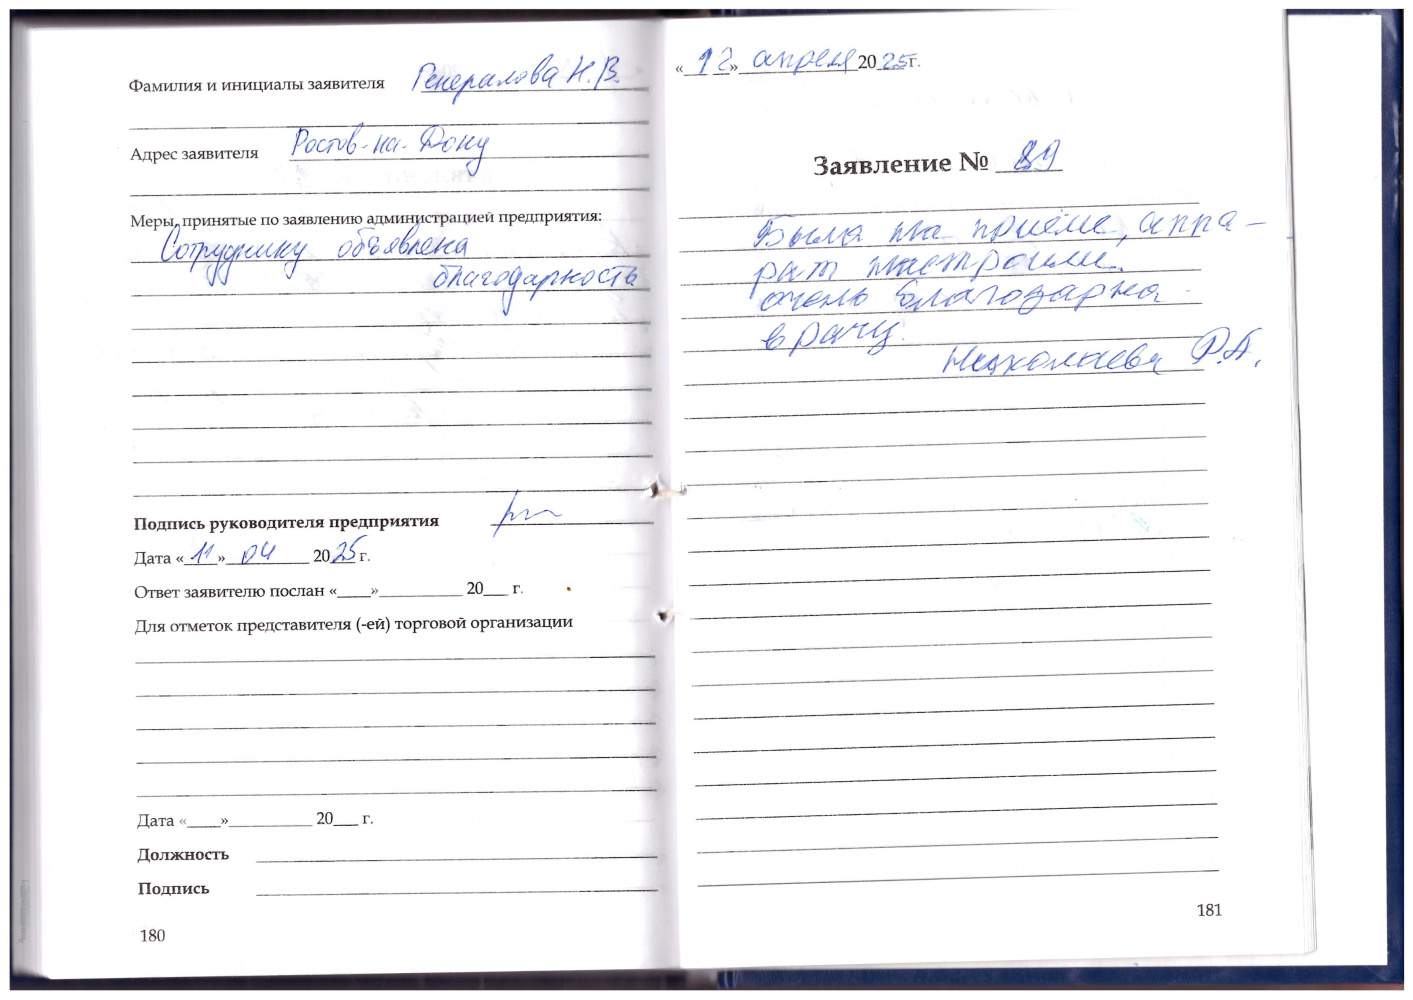 Фамилия и инициалы заявителя Генералова Н.В.
Адрес заявителя Ростов-на-Дону
Меры, принятые по заявлению администрацией предприятия:
Сотруднику объявлена
благодарность
Подпись руководителя предприятия
Дата «11» 04 2025 г.
Ответ заявителю послан «____»__________ 20___ г.
Для отметок представителя (-ей) торговой организации
Дата «____»__________ 20___ г.
Должность
Подпись
180
«12» апреля 2025г.
Заявление № 89
Была на приёме, аппа-
рат настроили.
очень благодарна
врачу.
Р.А.
181